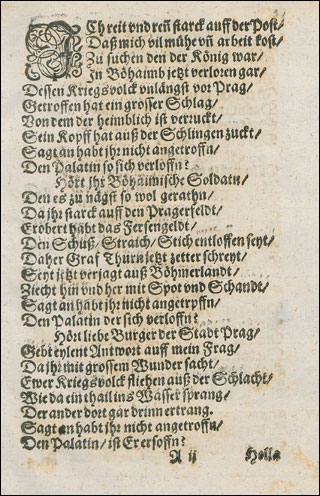 ICh reit vnd reñ starck auff der Post/
Daß mich vil mühe vñ arbeit kost/
Zu suchen den der König war/
In Böhaimb jetzt verloren gar/
Dessen Kriegsvolck vnlängst vor Prag/
Getroffen hat ein grosser Schlag/
Von dem der heimblich ist verruckt/
Sein Kopff hat auß der Schlingen zuckt/
Sagt an habt jhr nicht angetroffn/
Den Palatin so sich verloffn?
Hört jhr Böhaimische Soldatn/
Den es zu nägst so wol gerathn/
Da jhr starck auff den Pragerfeldt/
Erobert habt das Fersengeldt/
Den Schuß/ Straich/ Stich entloffen seyt/
Daher Graf Thurn jetzt zetter schreyt/
Seyt jetzt verjagt auß Böhmerlandt/
Ziecht hin vnd her mit Spot vnd Schandt/
Sagt an habt jhr nicht angetrpffn/
Den Palatin der sich verloffn?
Hört liebe Burger der Stadt Prag/
Gebt eylent Antwort auff mein Frag/
Da jhr mit grossem Wunder sacht/
Ewer Kriegsvolck fliehen auß der Schlacht/
Wie da ein thail ins Wasser sprang/
Der ander dort gar drinn ertrang.
Sagt an habt jhr nicht angetroffn/
Den Palatin/ ist Er ersoffn?
A ij Holla